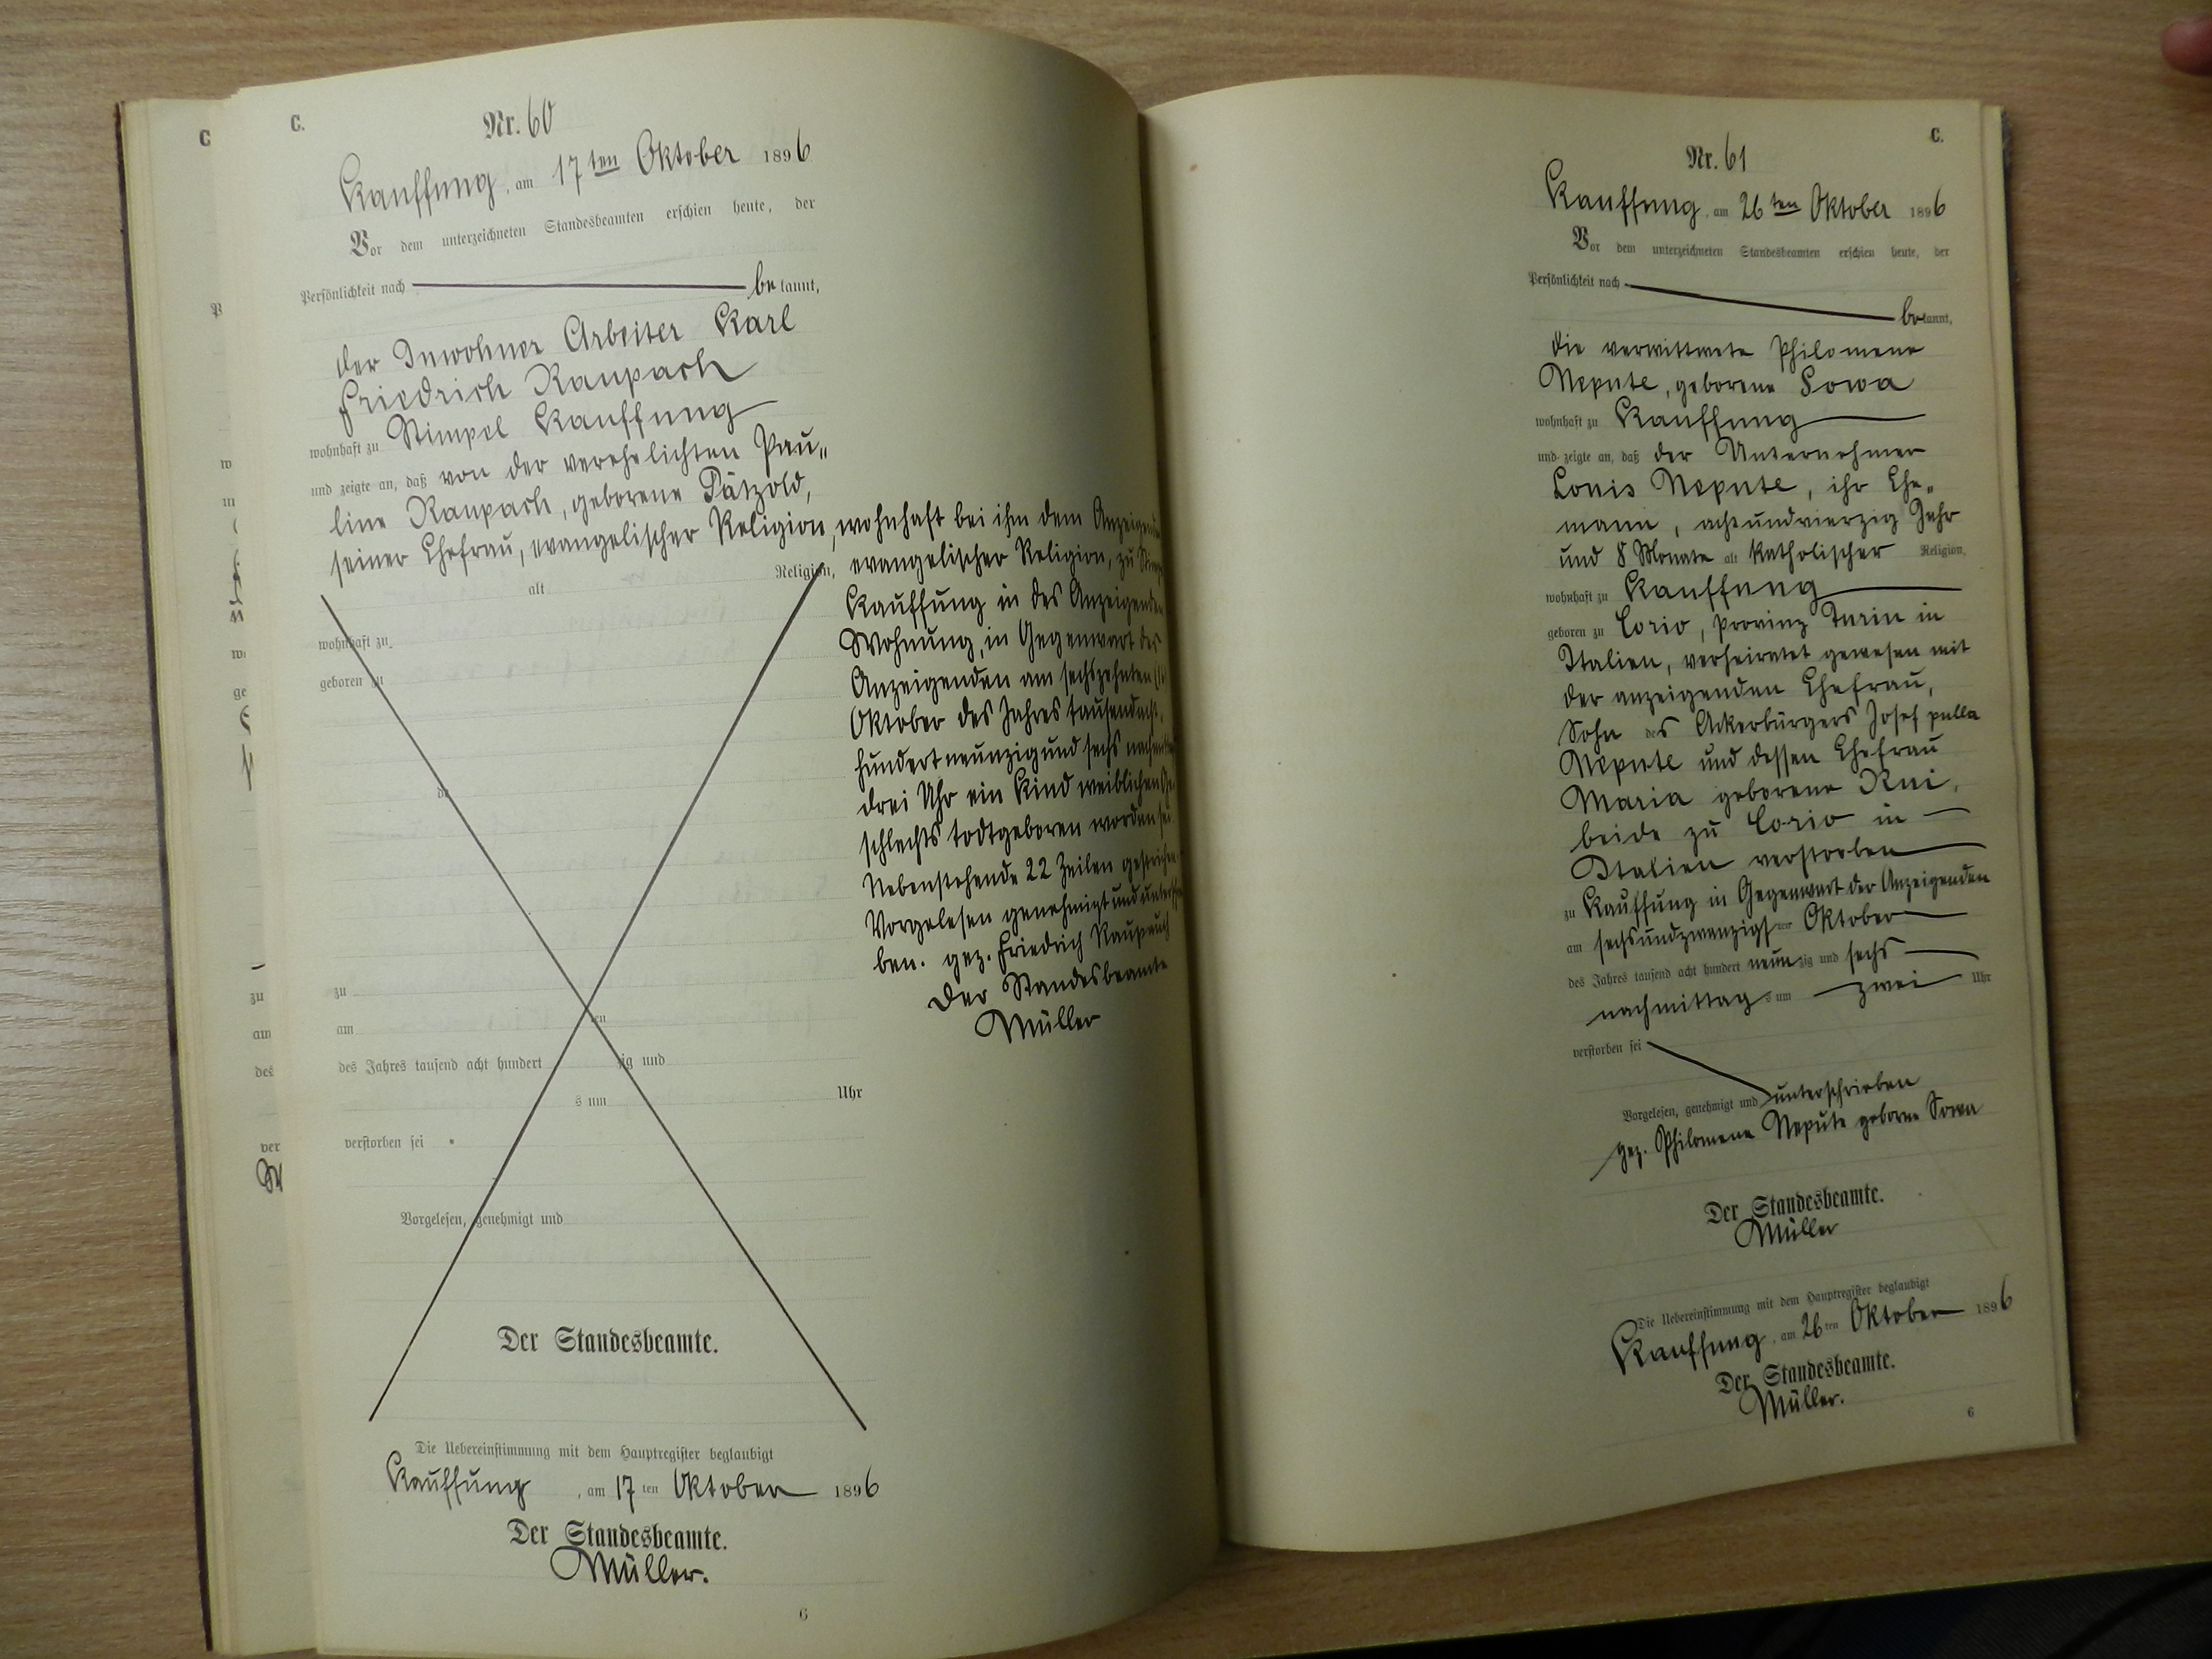 C.
Nr. 60
Kauffung, am 17ten Oktober 1896
Vor dem unterzeichneten Standesbeamten erschien heute, der
Persönlichkeit nach be kannt,
der Inwohner Arbeiter Karl
Friedrich Raupach
wohnhaft zu Stimpel Kauffung
und zeigte an, daß von der verehelichten Pau„
line Raupach, geborene Pätzold,
seiner Ehefrau, evangelischer Religion, wohnhaft bei ihm dem
alt Religion,
wohnhaft zu
geboren zu
zu
am ten
des Jahres tausend acht hundert zig und
s um Uhr
verstorben sei
Vorgelesen, genehmigt und
Der Standesbeamte.
evangelischer Religion, zu
Kauffung in des Anzeigenden
Wohnung, in Gegenwart des
Anzeigenden am sechszehnten
Oktober des Jahres tausendacht
hundert neunzig und sechs
drei Uhr ein Kind weiblichen
schlechts todtgeboren worden sei.
Nebenstehende 22 Zeilen gestrichen.
Vorgelesen genehmigt und
ben. gez. Friedrich Raupach
Der Standesbeamte
Müller
Die Uebereinstimmung mit dem Hauptregister beglaubigt
Kauffung, am 17ten Oktober 1896
Der Standesbeamte.
Müller.
6
C.
Nr. 61
Kauffung, am 26ten Oktober 1896
Vor dem unterzeichneten Standesbeamten erschien heute, der
Persönlichkeit nach
bekannt,
die verwittwete Philomene
Nepute, geborene Sowa
wohnhaft zu Kauffung
und zeigte an, daß der Unternehmer
Louis Nepute, ihr Ehe„
mann, achtundvierzig Jahr
und 8 Monate alt katholischer Religion,
wohnhaft zu Kauffung
geboren zu Corio, Provinz Turin in
Italien, verheiratet gewesen mit
der anzeigenden Ehefrau,
Sohn des Ackerbürgers Josef
Nepute und dessen Ehefrau
Maria geborene
beide zu Corio in
Italien verstorben
zu Kauffung in Gegenwart der Anzeigenden
am sechsundzwanzigsten Oktober
des Jahres tausend acht hundert neunzig und sechs
nachmittags um zwei Uhr
verstorben sei
Vorgelesen, genehmigt und unterschrieben
gez. Philomene Nepute geborne Sowa
Der Standesbeamte.
Müller
Die Uebereinstimmung mit dem Hauptregister beglaubigt
Kauffung, am 26ten Oktober 1896
Der Standesbeamte.
Müller.
6